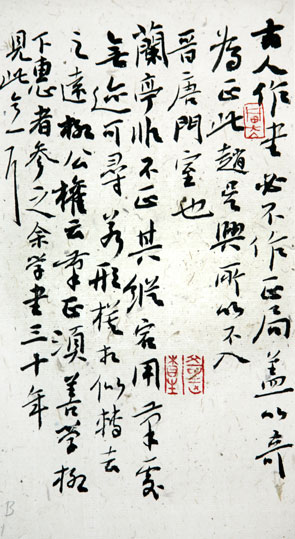 古人作書必不作正局蓋以奇
為正此趙吳興所以不入
晉唐門室也
蘭亭非不正其縱宕用筆處
無迹可尋若形模相似轉去
之遠柳公權云筆正須善學柳
下惠者參之余學書三十年
見此
B